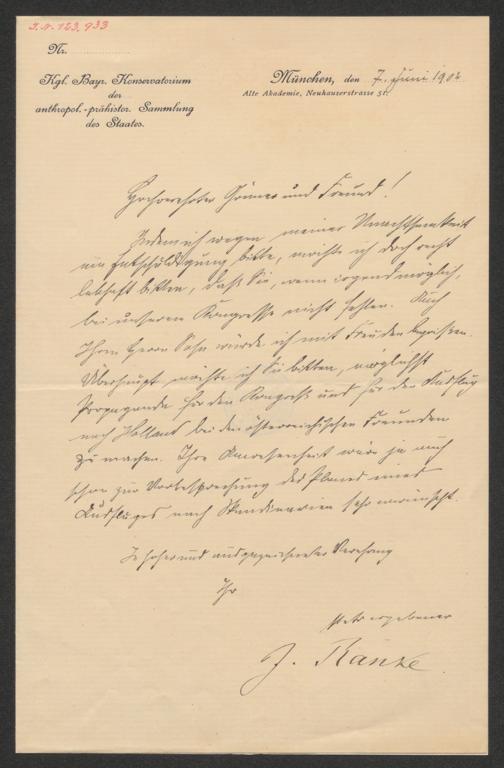 I.N. 123.933
Nr.
Kgl. Bayr. Konservatorium
der
anthropol.-prähistor. Sammlung
des Staates.
München, den 7. Juni 190
Alte Akademie, Neuhauserstrasse 51.
Hochverehrter Gönner und Freund!
Indem ich wegen meiner Unachtsamkeit
um Entschuldigung bitte, möchte ich doch recht
lebhaft bitten, daß Sie, wenn irgend möglich,
bei unserem Kongresse nicht fehlen. Auch
Ihren Herrn Sohn würde ich mit Freuden begrüßen.
Überhaupt möchte ich Sie bitten, möglichst
Propaganda für den Kongreß und für den Ausflug
nach Holland bei den österreichischen Freunden
zu machen. Ihre Anwesenheit wäre ja auch
schon zur Vorbesprechung des Planes eines
Ausfluges nach Skandinavien sehr erwünscht.
In hoher und ausgezeichneter Verehrung
Ihr
stets ergebener
J. Ranke